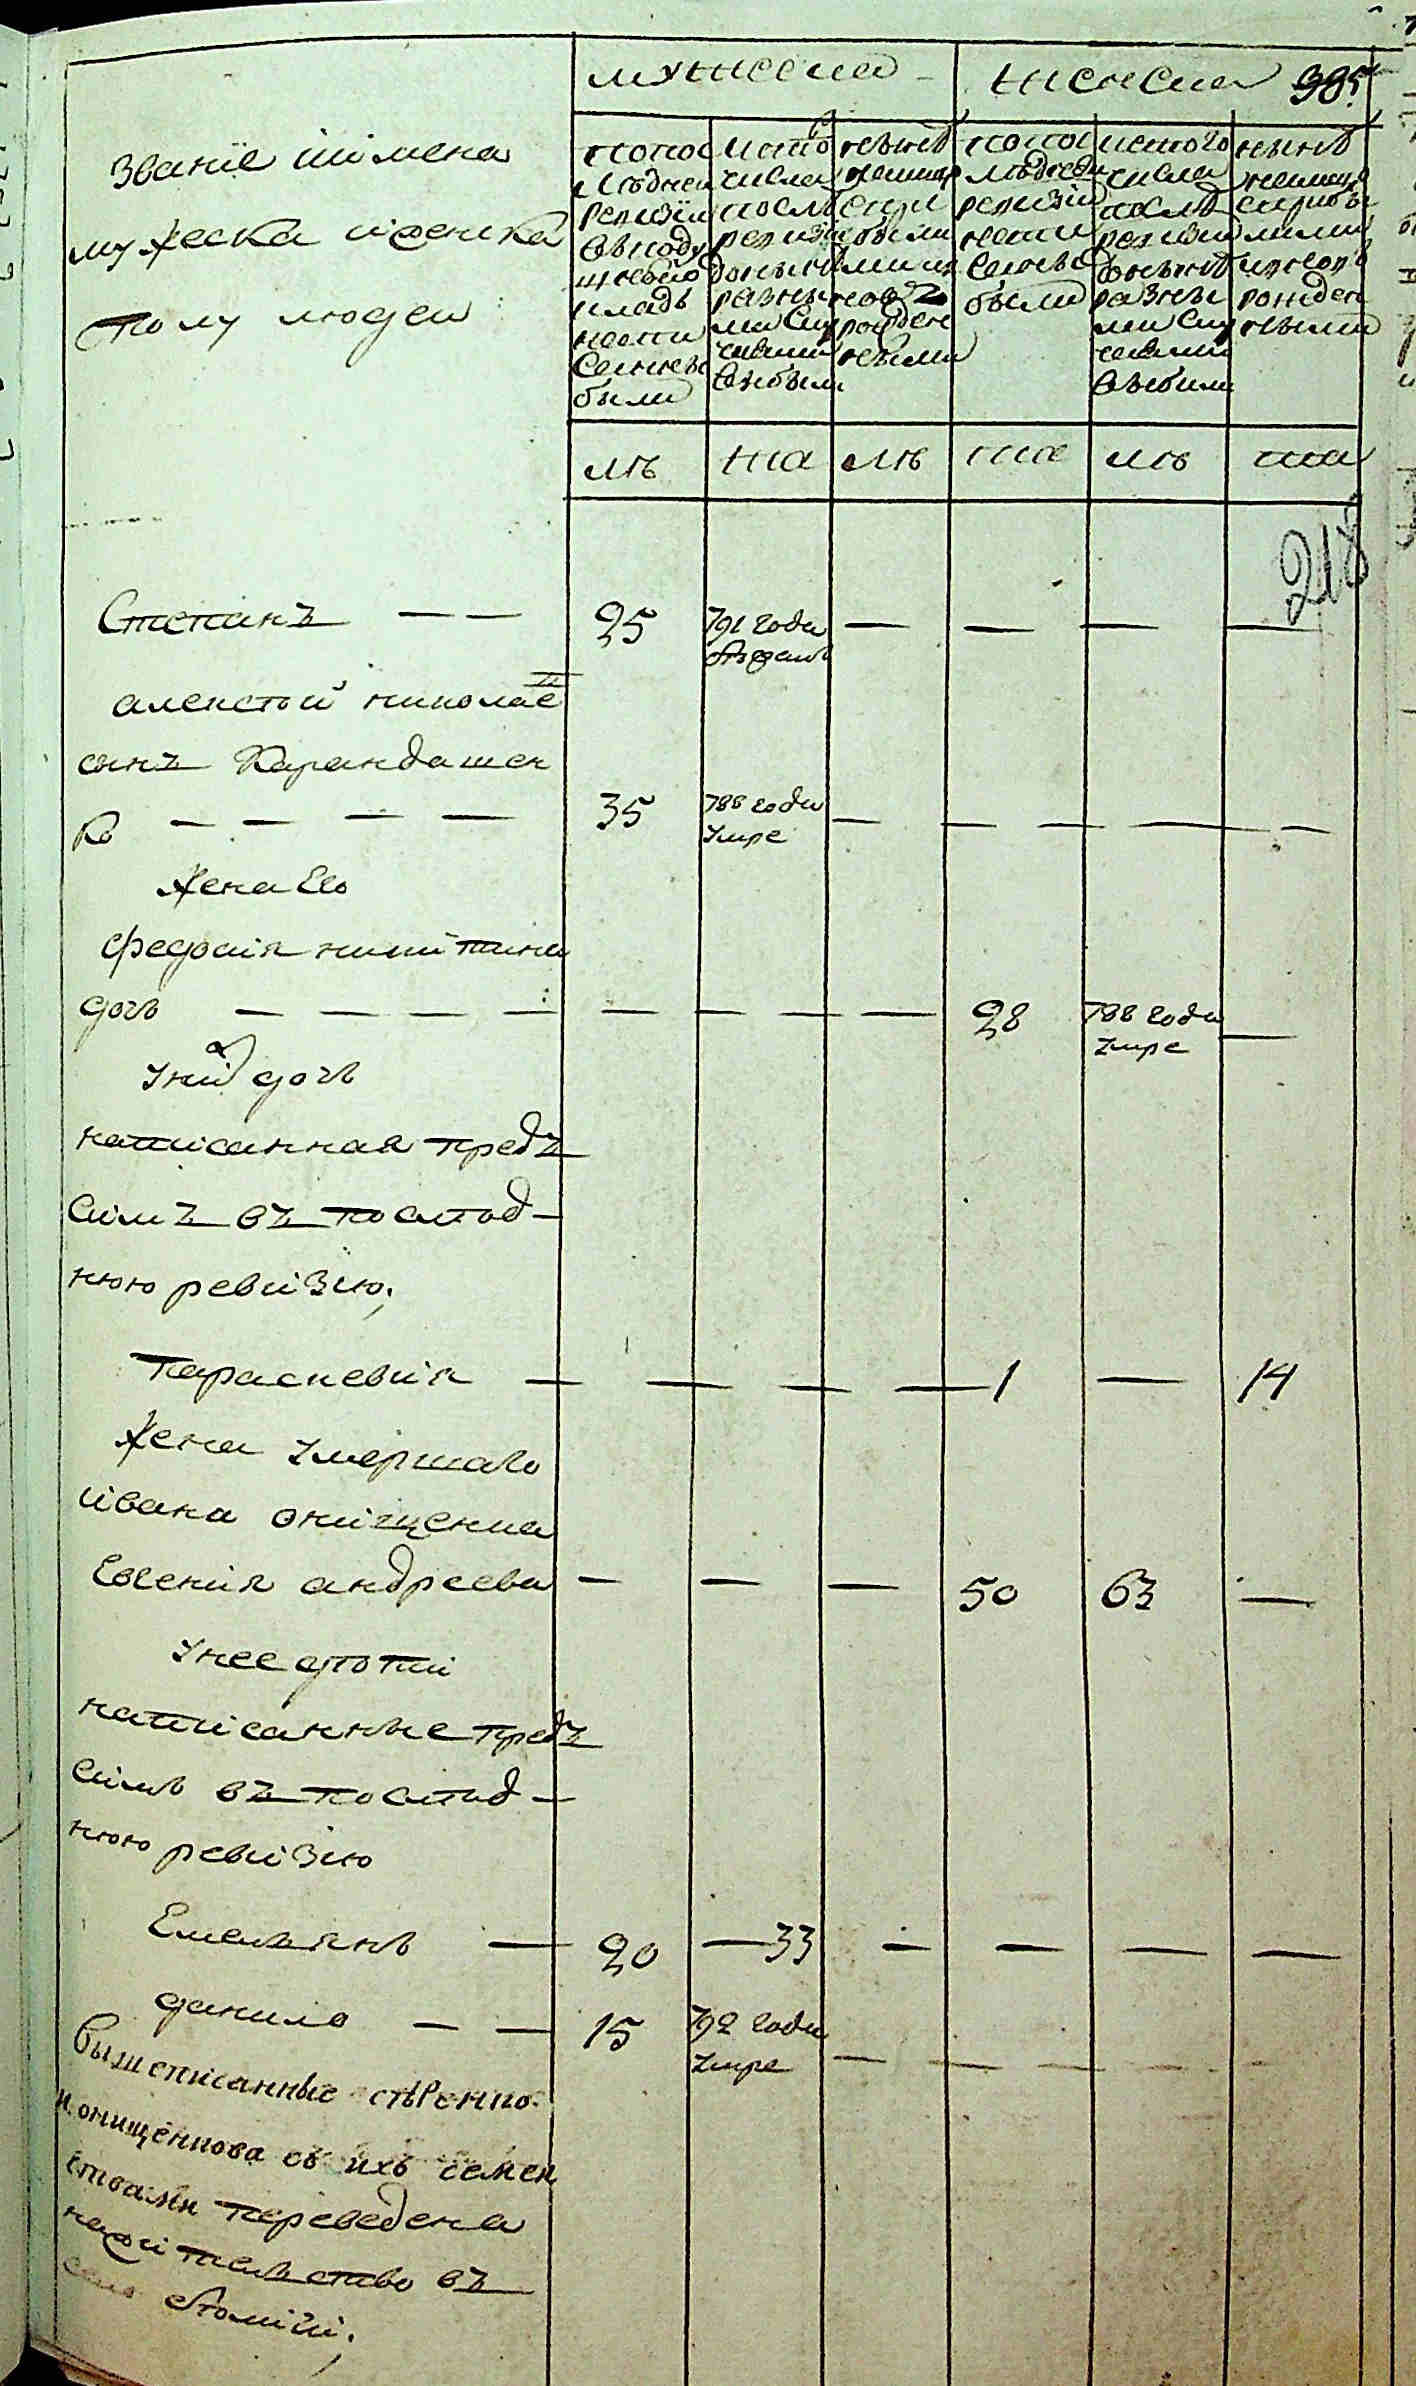 мужеска
женска 385
званïе иимена
мужеска иженска
полу людей
попос
ледней
ревизïи
вподу
шной
окладъ
после
ревизïи
разны
ми слу
чаями
выбыли
нынѣ
рожден
ными
попос
ледней
ревизïи
были
истого
числа
после
ревизïи
разны
ми слу
чаями
выбыли
нынѣ
рожден
ными
лѣ
та
лѣ
та
лѣ
та
218
Степанъ — — 25 791 года — — — —
алексѣй николае
сынъ Карандашен
ко — — — — 35 788 года умре — — — — —
жена Ево
федосïя никитина
дочь — — — — — — — 28 788 года умре —
Унихъ дочь
написанная предъ
симъ въ послѣд-
нюю ревизïю;
параскевïя — — — — 1 — 14
Жена умершаго
ивана онищенка
Евгенïя андреева — — — 50 63 —
Унее дѣти
написанные предъ
симъ въ послѣд-
нюю ревизïю
Емельянъ — 20 — 33 — — — —
данило — — 15 792 года умре — — — — —
вышеписанные
онищенкова съ ихъ семей
ствами переведена
нажительство въ
село